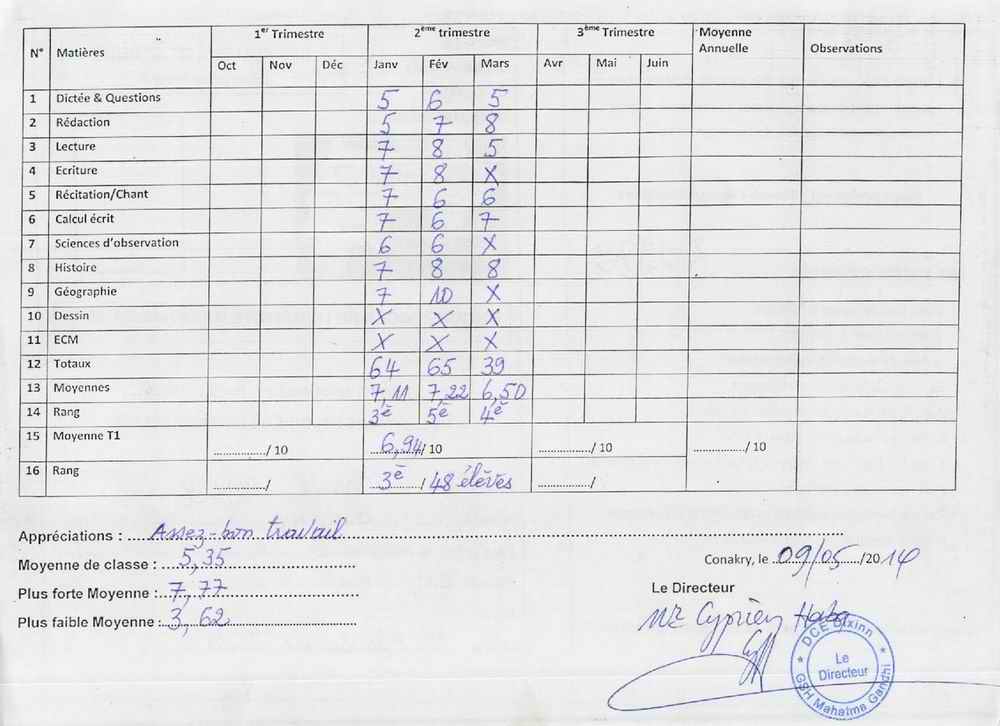 N° Matières 1er Trimestre 2ème trimestre 3ème Trimestre Moyenne Annuelle Observations
Oct Nov Déc Janv Fév Mars Avr Mai Juin
1 Dictée & Questions 5 6 5
2 Rédaction 5 7 8
3 Lecture 7 8 5
4 Ecriture 7 8 X
5 Récitation/Chant 7 6 6
6 Calcul écrit 7 6 7
7 Sciences d'observation 6 6 X
8 Histoire 7 8 8
9 Géographie 7 10 X
10 Dessin X X X
11 ECM X X X
12 Totaux 64 65 39
13 Moyennes 7,11 7,22 6,50
14 Rang 3è 5è 4è
15 Moyenne T1 ................./ 10 6,94/ 10 ................./ 10 ................./ 10
16 Rang ................./ 3è/ 48 élèves ................./
Appréciations : Assez-bon travail
Moyenne de classe : 5,35
Plus forte Moyenne : 7,77
Plus faible Moyenne : 3,62
Conakry, le 09/05/2014
Le Directeur
Mr Cyprien Haba
DCE Dixinn
Le Directeur
GSH Mahatma Gandhi